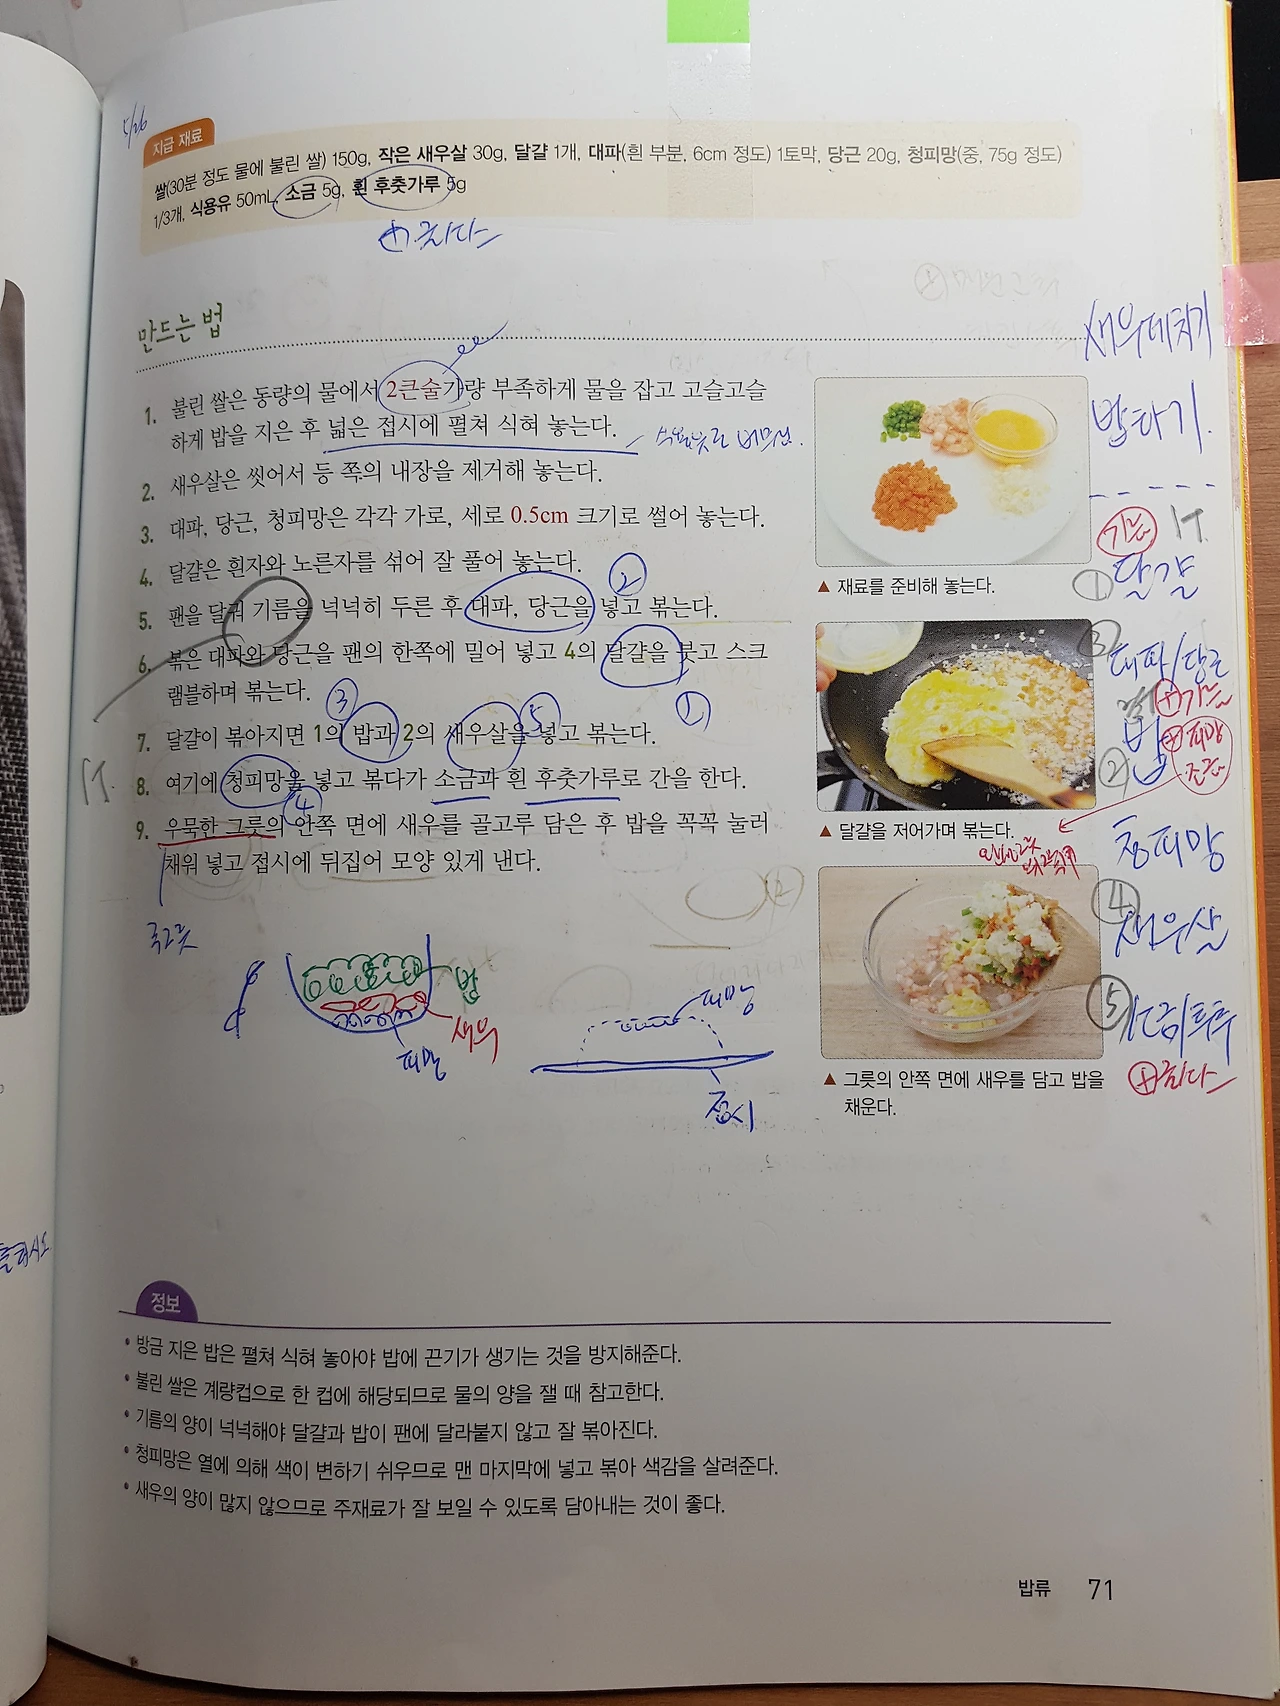 5/26
지급 재료
쌀(30분 정도 물에 불린 쌀) 150g, 작은 새우살 30g, 달걀 1개, 대파(흰 부분, 6cm 정도) 1토막, 당근 20g, 청피망(중, 75g 정도)
1/3개, 식용유 50mL, 소금 5g, 흰 후춧가루 5g
만드는 법
1. 불린 쌀은 동량의 물에서 2큰술가량 부족하게 물을 잡고 고슬고슬
하게 밥을 지은 후 넓은 접시에 펼쳐 식혀 놓는다.
2. 새우살은 씻어서 등 쪽의 내장을 제거해 놓는다.
3. 대파, 당근, 청피망은 각각 가로, 세로 0.5cm 크기로 썰어 놓는다.
4. 달걀은 흰자와 노른자를 섞어 잘 풀어 놓는다.
②
5. 팬을 달궈 기름을 넉넉히 두른 후 대파, 당근을 넣고 볶는다.
6. 볶은 대파와 당근을 팬의 한쪽에 밀어 넣고 4의 달걀을 붓고 스크
램블하며 볶는다.
③
⑤
①
7. 달걀이 볶아지면 1의 밥과 2의 새우살을 넣고 볶는다.
1T.
8. 여기에 청피망을 넣고 볶다가 소금과 흰 후춧가루로 간을 한다.
④
9. 우묵한 그릇의 안쪽 면에 새우를 골고루 담은 후 밥을 꼭꼭 눌러
채워 넣고 접시에 뒤집어 모양 있게 낸다.
국그릇
밥
새우
피망
피망
접시
▲ 재료를 준비해 놓는다.
▲ 달걀을 저어가며 볶는다.
▲ 그릇의 안쪽 면에 새우를 담고 밥을
채운다.
새우데치기
밥하기.
기름 1T.
① 달걀
③ 대파/당근
+기름
② 밥
피망
조금
청피망
④ 새우살
⑤ 소금/후추
정보
• 방금 지은 밥은 펼쳐 식혀 놓아야 밥에 끈기가 생기는 것을 방지해준다.
• 불린 쌀은 계량컵으로 한 컵에 해당되므로 물의 양을 잴 때 참고한다.
• 기름의 양이 넉넉해야 달걀과 밥이 팬에 달라붙지 않고 잘 볶아진다.
• 청피망은 열에 의해 색이 변하기 쉬우므로 맨 마지막에 넣고 볶아 색감을 살려준다.
• 새우의 양이 많지 않으므로 주재료가 잘 보일 수 있도록 담아내는 것이 좋다.
밥류 71